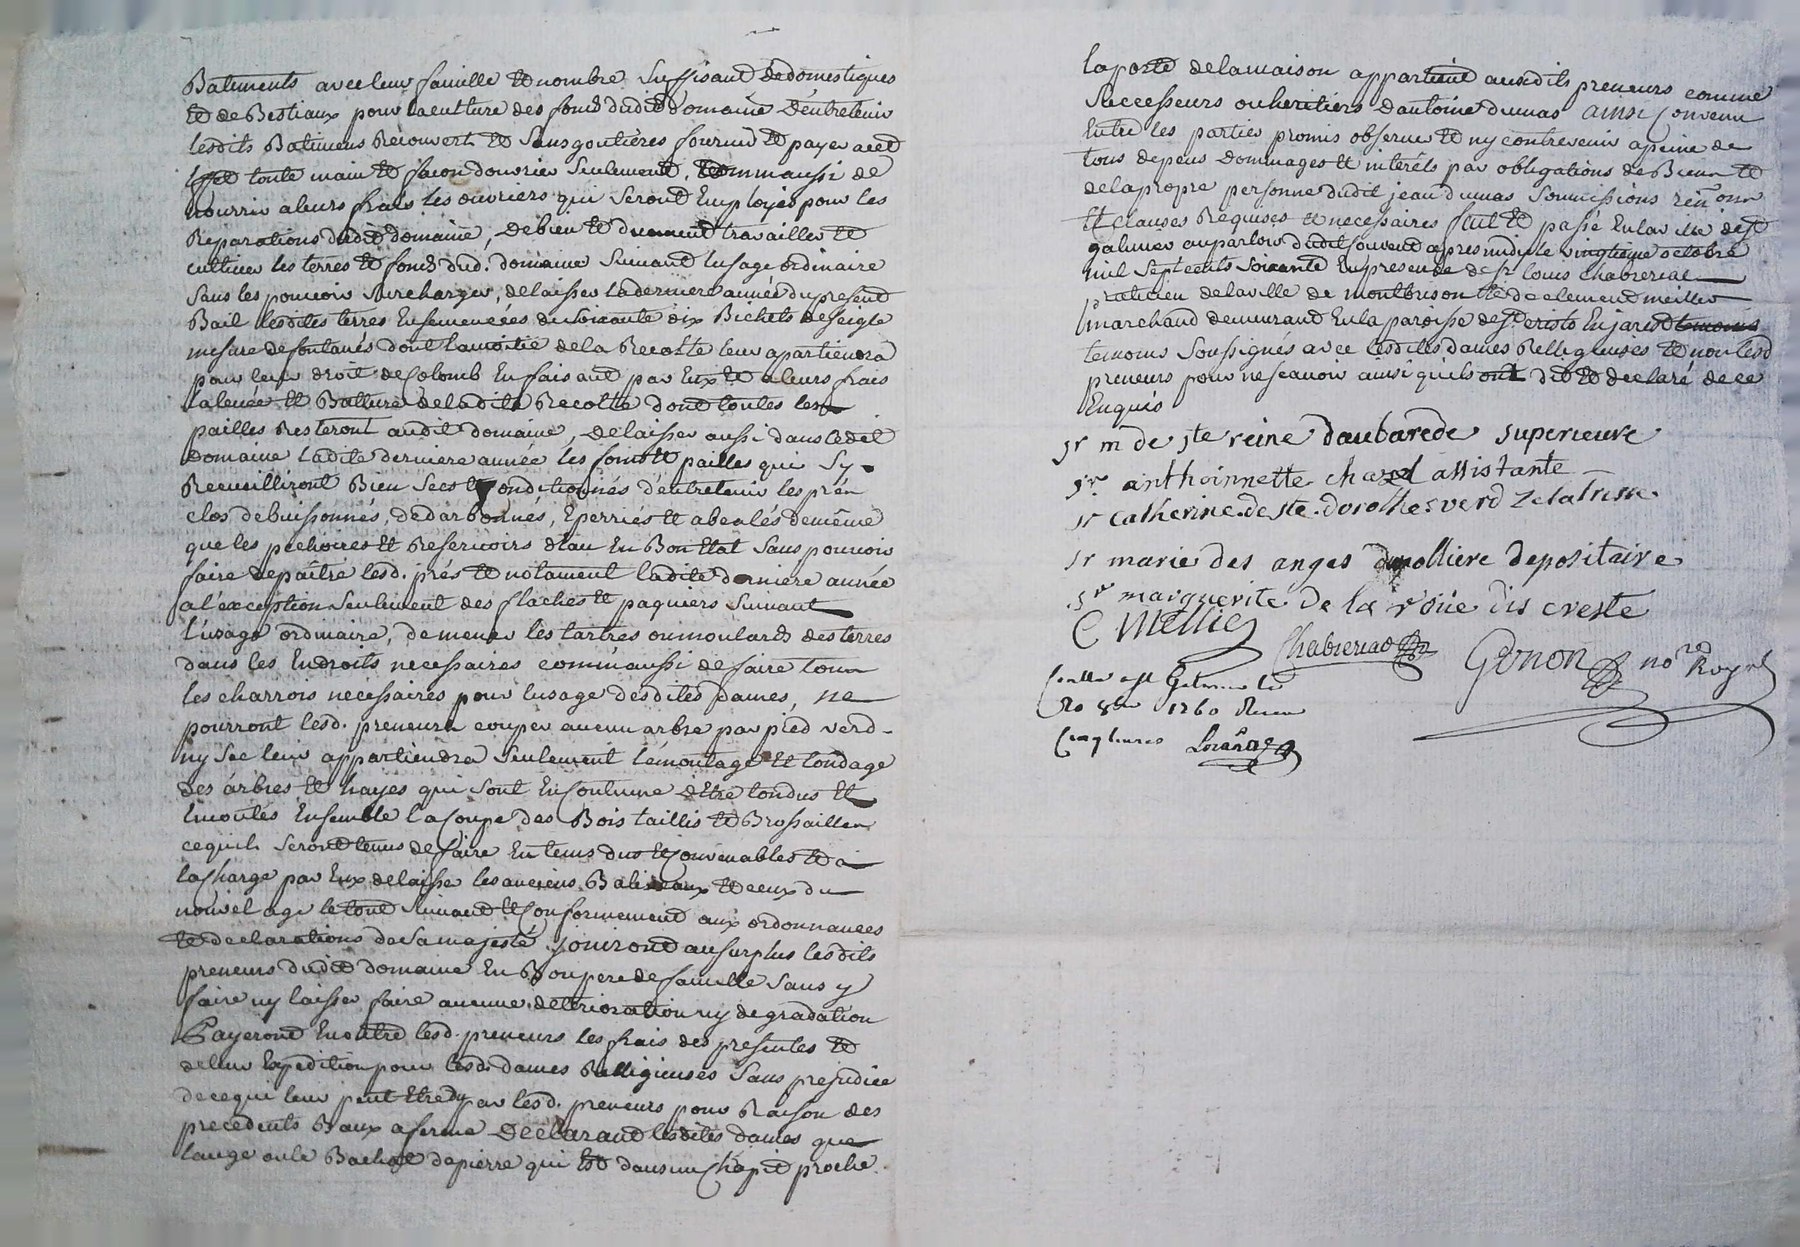 Batiments avec leur famille et nombre suffisant de domestiques
et de Bestiaux pour la culture des fonds dudit domaine d'entretenir
lesdits Batimens Recouverts et sans goutières fournir et payer a cet
effet toute main et facon d'ouvrier seulement, comm'aussi de
nourrir a leurs frais les ouvriers qui seront Employés pour les
Reparations dudit domaine, de bien et duement travailler et
cultiver les terres et fonds dud. domaine suivant l'usage ordinaire
sans les pouvoir surcharger, de laisser la derniere année du present
Bail lesdites terres Ensemencées de soixante dix Bichets de seigle
mesure de fontanés dont la moitié de la Recolte leur apartiendra
pour leur droit de Colomb En faisant par Eux et a leurs frais
la levée et Batture de ladite Recolte dont toutes les
pailles Resteront audit domaine, de laisser aussi dans ledit
domaine ladite derniere année les foins et pailles qui sy
Recueilliront Bien secs et Conditionnés d'entretenir les prés
clos debuissonnés, dedarbonnés, Eperriés et abealés de même
que les pechoires et Reservoirs d'eau En Bon Etat sans pouvoir
faire depaitre lesd. prés et notament ladite derniere année
a l'exception seulement des flaches et paquiers suivant
l'usage ordinaire, de mener les tartres ou moulards des terres
dans les Endroits necessaires comm'aussi de faire tous
les charrois necessaires pour l'usage desdites dames, ne
pourront lesd. preneurs couper aucun arbre par pied verd
ny sec leur appartiendra seulement l'émontage et tondage
des arbres et hayes qui sont En Coutume d'Etre tondus et
Emontés Ensemble la Coupe des Bois taillis et Brossailles
ce quils seront tenus de faire En tems dus et Convenables et a
la Charge par Eux de laisser les anciens Baliveaux et ceux du
nouvel age le tout suivant et Conformement aux ordonnances
et declarations de sa majesté, jouiront au surplus lesdits
preneurs dudit domaine En Bon pere de famille sans y
faire ny laisser faire aucune deterioration ny degradation
Payeront En outre lesd. preneurs les frais des presentes et
de leur Expedition pour lesd. dames Relligieuses sans prejudice
de ce qui leur peut Etre dû par lesd. preneurs pour Raison des
precedents Baux a ferme Declarant lesdites dames que
l'auge ou le Bachat de pierre qui Est dans un Chapit proche
la porte de la maison appartient auxdits preneurs comme
successeurs ou heritiers d'antoine dumas ainsi Convenu
Entre les parties promis observer et ny contrevenir a peine de
tous depens dommages et interêts par obligations de Biens et
de la propre personne dudit jean dumas soumissions renons
et clauses Requises et necessaires fait et passé En la ville de st
galmier au parloir dudit Couvent apres midy le vingtieme octobre
mil sept cents soixante En presence de sr louis chabreriat
praticien de la ville de montbrison et de clement meiller
marchand demeurant En la paroisse de st cristo En jarest
temoins soussignés avec lesdittes dames Relligieuses et non lesd
preneurs pour ne scavoir ainsi quils ont dit et declaré de ce
Enquis
sr m de ste reine daubarede superieure
sr anthoinnette chazel assistante
sr catherine de ste dorothé verd zelatrisse
sr marie des anges dumolliere depositaire
sr marguerite de la roüe discreste
C Mellier
Chabreriat
Gonon nore Royal
Controllé a St Galmier le
20 8bre 1760 Recu